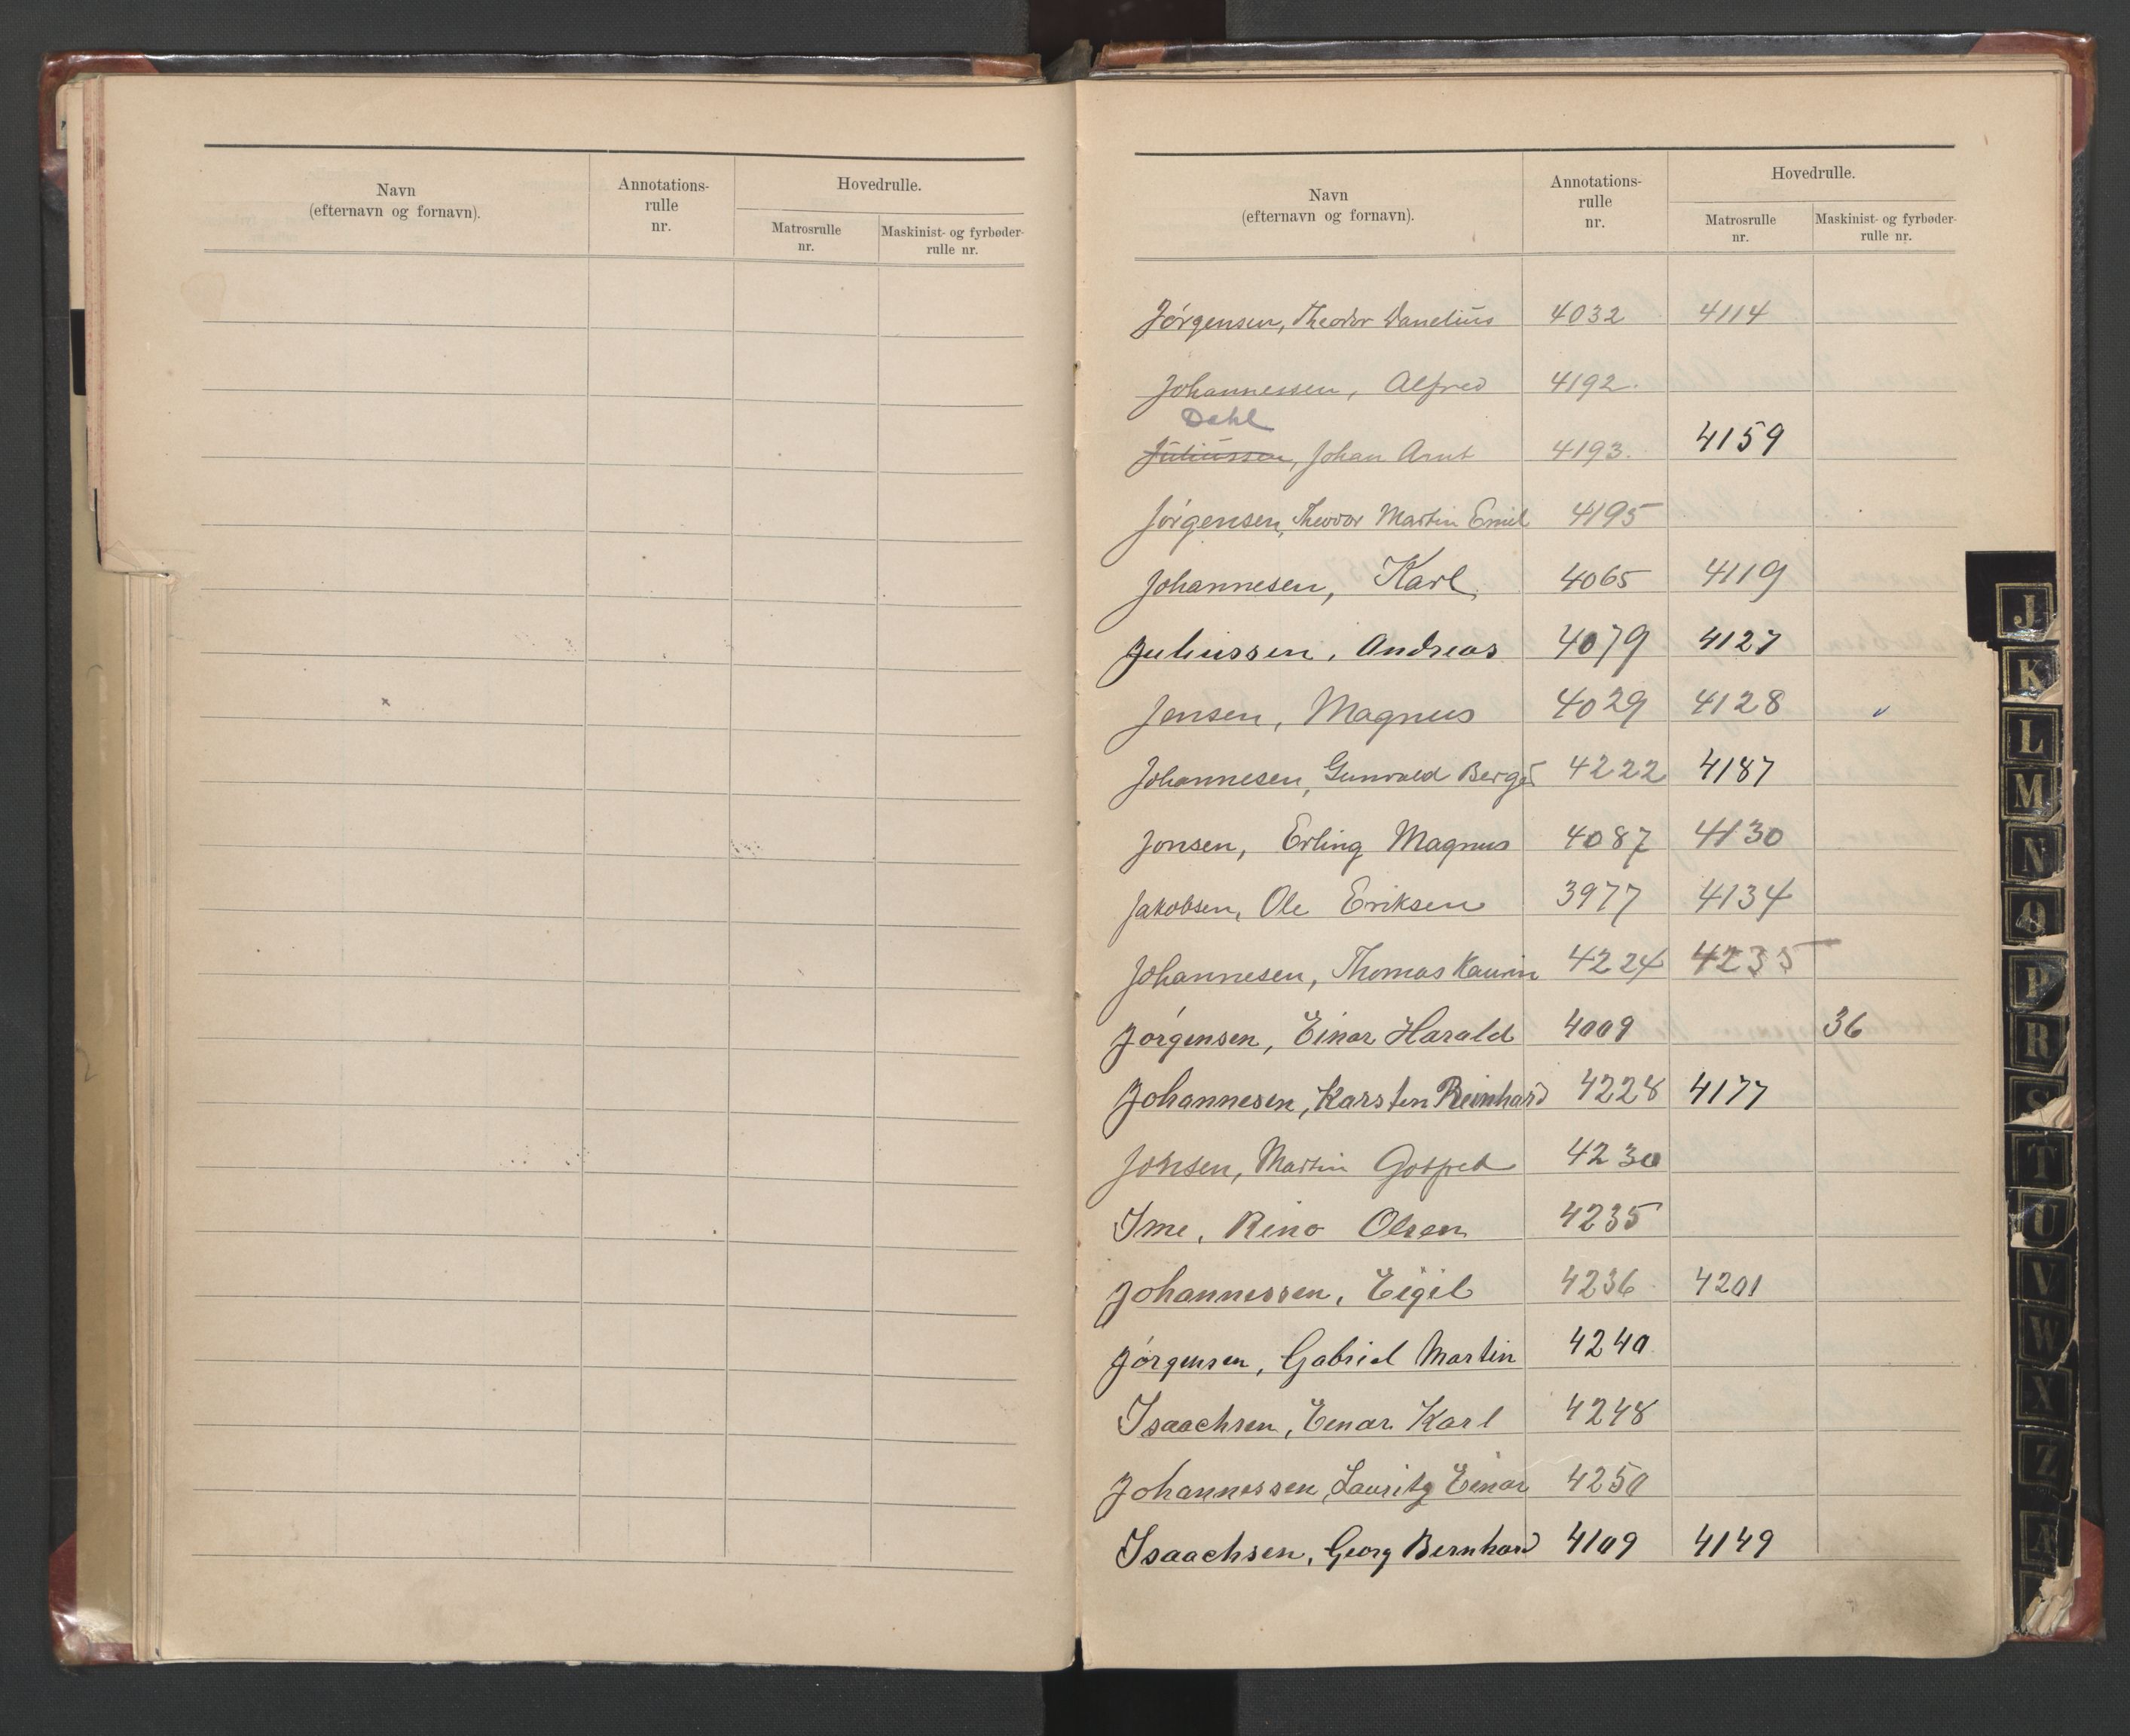 Navn
(efternavn og fornavn).
Annotations-
rulle
nr.
Hovedrulle.
Matrosrulle
nr.
Maskinist- og fyrbøder-
rulle nr.
Navn
(efternavn og fornavn).
Annotations-
rulle
nr.
Hovedrulle.
Matrosrulle
nr.
Maskinist- og fyrbøder-
rulle nr.
Jørgensen, Theodor Danelius 4032 4114
Johannessen, Alfred 4192.
Dahl
Juliussen, Johan Arnt 4193. 4159
Jørgensen, Theodor Martin Emil 4195
Johannesen, Karl 4065 4119
Juliussen, Andreas 4079 4127
Jensen, Magnus 4029 4128
Johannesen, Gunvald 4222 4187
Jonsen, Erling Magnus 4087 4130
Jakobsen, Ole Eriksen 3977 4134
Johannesen, Thomas Kaurin 4224 4235
Jørgensen, Einar Harald 4009 36
Johannesen, Karsten Reinhard 4228 4177
Jonsen, Martin 4230
Ime, Reno Olsen 4235
Johannessen, Eigil 4236 4201
Jørgensen, Gabriel Martin 4240
Isaachsen, Einar Karl 4248
Johannessen, Lauritz Einar 4250
Isaachsen, Georg Bernhard 4109 4149
J
K
L
M
N
O
P
R
S
T
U
V
W
X
Z